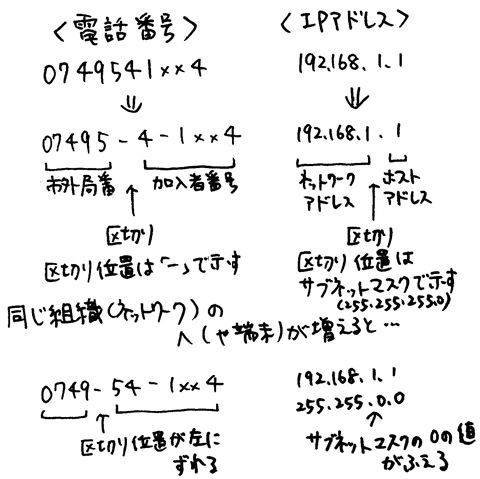 〈電話番号〉
0749541××4
⇓
07495-4-1××4
市外局番 加入者番号
↑
区切り
区切り位置は「-」で示す
〈IPアドレス〉
192.168.1.1
⇓
192.168.1.1
ネットワークアドレス ホストアドレス
↑
区切り
区切り位置は
サブネットマスクで示す
(255.255.255.0)
同じ組織(ネットワーク)の
人(や端末)が増えると…
0749-54-1××4
↑
区切り位置が左に
ずれる
192.168.1.1
255.255.0.0
↑
サブネットマスクの0の値
がふえる